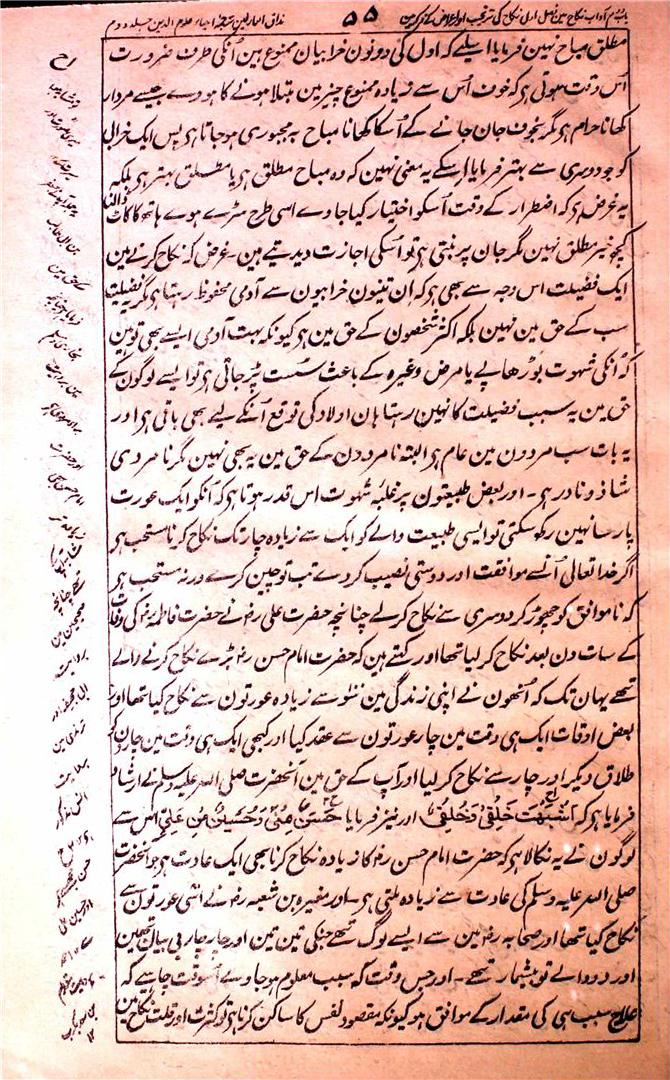 باب دوم آداب نکاح مین فصل اول نکاح کی ترغیب اور اعراض کے ذکر مین
۵۵
مذاق العارفین ترجمہ احیاء علوم الدین جلد دوم
مطلق مباح نہین فرمایا اسیلے کہ اول کی دونون خرابیان ممنوع ہین اُنکی طرف ضرورت
اُس وقت ہوتی ہی کہ خوف اُس سے زیادہ ممنوع چیز مین مبتلا ہونے کا ہووے جیسے مردار
کھانا حرام ہی مگر بخوف جان جانے کے اُسکا کھانا مباح بہ مجبوری ہو جاتا ہی پس ایک خرابی
کو جو دوسری سے بہتر فرمایا اِسکے یہ معنی نہین کہ وہ مباح مطلق ہی یا مطلق بہتر ہی بلکہ
یہ غرض ہی کہ اضطرار کے وقت اُسکو اختیار کیا جاوے اسی طرح سڑے ہوے ہاتھ کا کاٹ ڈالنا
کچھ خیر مطلق نہین مگر جان پر بنتی ہی تو اُسکی اجازت دیدیتے ہین۔ غرض کہ نکاح کرنے مین
ایک فضیلت اس وجہ سے بھی ہی کہ ان تینون خرابیون سے آدمی محفوظ رہتا ہی مگر یہ فضیلت
سب کے حق مین نہین بلکہ اکثر شخصون کے حق مین ہی کیونکہ بہت آدمی ایسے بھی تو ہین
کہ اُنکی شہوت بوڑھاپے یا مرض وغیرہ کے باعث سست پڑ جاتی ہی تو ایسے لوگون کے
حق مین یہ سبب فضیلت کا نہین رہتا ہان اولاد کی توقع اُنکے لیے بھی باقی ہی اور
یہ بات سب مردون مین عام ہی البتہ نامردون کے حق مین یہ بھی نہین مگر نامردی
شاذ و نادر ہی۔ اور بعض طبیعتون پر غلبۂ شہوت اس قدر ہوتا ہی کہ اُنکو ایک عورت
پارسا نہین رکھ سکتی تو ایسی طبیعت والے کو ایک سے زیادہ چار تک نکاح کرنا مستحب ہی
اگر خدا تعالیٰ اُنسے موافقت اور دوستی نصیب کر دے تب تو چین کرے ورنہ مستحب ہی
کہ ناموافق کو چھوڑ کر دوسری سے نکاح کر لے چنانچہ حضرت علی رضہ نے حضرت فاطمہ رضہ کی وفات
کے سات دن بعد نکاح کر لیا تھا اور کہتے ہین کہ حضرت امام حسن رضہ بڑے نکاح کرنے والے
تھے یہان تک کہ اُنھون نے اپنی زندگی مین سَو سے زیادہ عورتون سے نکاح کیا تھا اور
بعض اوقات ایک ہی وقت مین چار عورتون سے عقد کیا اور کبھی ایک ہی وقت مین چارون کو
طلاق دیکر اور چار سے نکاح کر لیا اور آپ کے حق مین آنحضرت صلی اللہ علیہ وسلم نے ارشاد
فرمایا ہی کہ اَشْبَہْتَ خَلْقِیْ وَخُلُقِیْ اور نیز فرمایا حَسَنٌ مِنِّیْ وَحُسَیْنٌ مِنْ عَلِیٍّ اس سے
لوگون نے یہ نکالا ہی کہ حضرت امام حسن رضہ کا زیادہ نکاح کرنا بھی ایک عادت ہی جو آنحضرت
صلی اللہ علیہ وسلم کی عادت سے زیادہ ملتی ہی۔ اور مغیرہ بن شعبہ رضہ نے اسّی عورتون سے
نکاح کیا تھا اور صحابہ رضہ مین سے ایسے لوگ تھے جنکی تین تین اور چار چار بی بیان تھین
اور دو والے تو بیشمار تھے۔ اور جس وقت کہ سبب معلوم ہو جاوے اُسوقت چاہیے کہ
علاج سبب ہی کی مقدار کے موافق ہو کیونکہ مقصود نفس کا ساکن کرنا ہی تو کثرت اور قلت نکاح مین